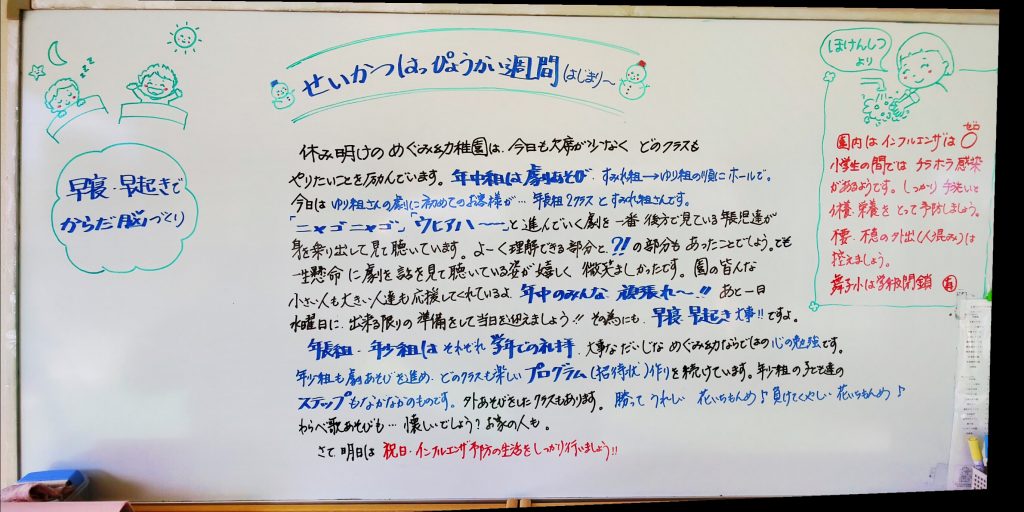 せいかつはっぴょうかい週間 はじまり～
早寝・早起きで
からだ脳づくり
休み明けの めぐみ幼稚園は、今日も欠席が少なく どのクラスも
やりたいことを励んでいます。年中組は劇あそび。すみれ組→ゆり組の順にホールで。
今日は ゆり組さんの劇に初めてのお客様が… 年長組2クラスとすみれ組さんです。
「ニャゴ ニャゴ」「ウヒアハ〜〜」と進んでいく劇を一番後方で見ている年長児達が
身を乗り出して見て聴いています。よーく理解できる部分と、?!の部分もあったことでしょう。でも
一生懸命に劇を話を見て聴いている姿が嬉しく 微笑ましかったです。園の皆んな
小さい人も大きい人達も応援してくれているよ 年中のみんな 頑張れ〜!! あと一日
水曜日に、出来る限りの準備をして当日を迎えましょう!! その為にも、早寝・早起き大事!!ですよ。
年長組・年少組は それぞれ 学年での礼拝。大事な だいじな めぐみ幼ならではの心の勉強です。
年少組も劇あそびを進め、どのクラスも楽しいプログラム(招待状)作りを続けています。年少組の子ども達の
ステップもなかなかのものです。外あそびをしたクラスもあります。勝って うれしい 花いちもんめ♪負けてくやしい 花いちもんめ♪
わらべ歌あそびも… 懐しいでしょう？お家の人も。
さて、明日は 祝日・インフルエンザ予防の生活をしっかり行いましょう!!
ほけんしつ
より
園内は インフルエンザは 0 ゼロ
小学生の間では チラホラ感染
があるようです。しっかり手洗いと
休養・栄養を とって予防しましょう。
不穏の外出(人混み)は
控えましょう。
舞子小は学級閉鎖